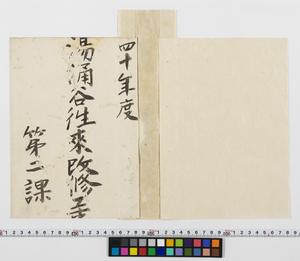 四十年度
湯涌谷往來改修
第二課